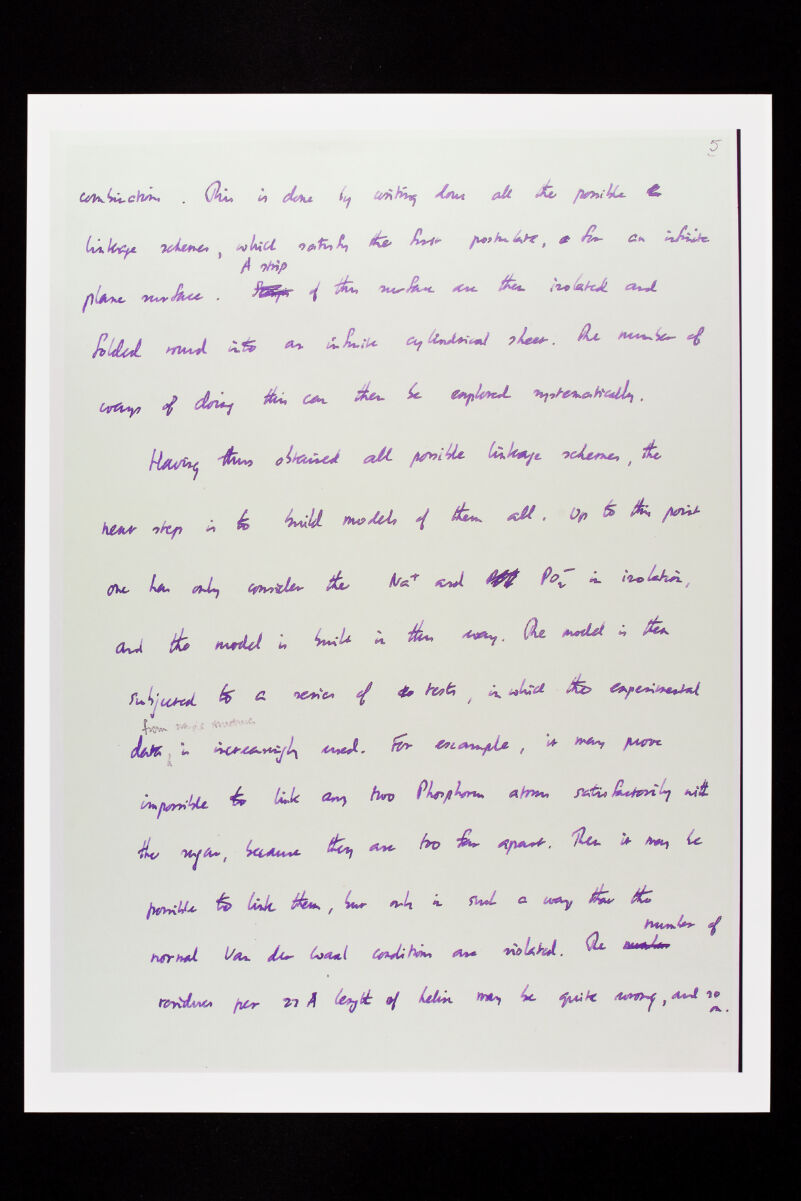 5
combination. This is done by writing down all the possible
linkage schemes, which satisfy the first postulate, for an infinite
A strip
plane surface. of this surface are then isolated and
folded round into an infinite cylindrical sheet. The number of
ways of doing this can then be explored systematically.
Having thus obtained all possible linkage schemes, the
next step is to build models of them all. Up to this point
one has only consider the Na⁺ and PO₂⁻ in isolation,
and the model is built in this way. The model is then
subjected to a series of tests, in which the experimental
from
data, is increasingly used. For example, it may prove
impossible to link any two Phosphorus atoms satisfactorily with
the sugar, because they are too far apart. Then it may be
possible to link them, but only in such a way that the
normal Van der Waal conditions are violated. The
number of
residues per 27 Å length of helix may be quite wrong, and so
on.